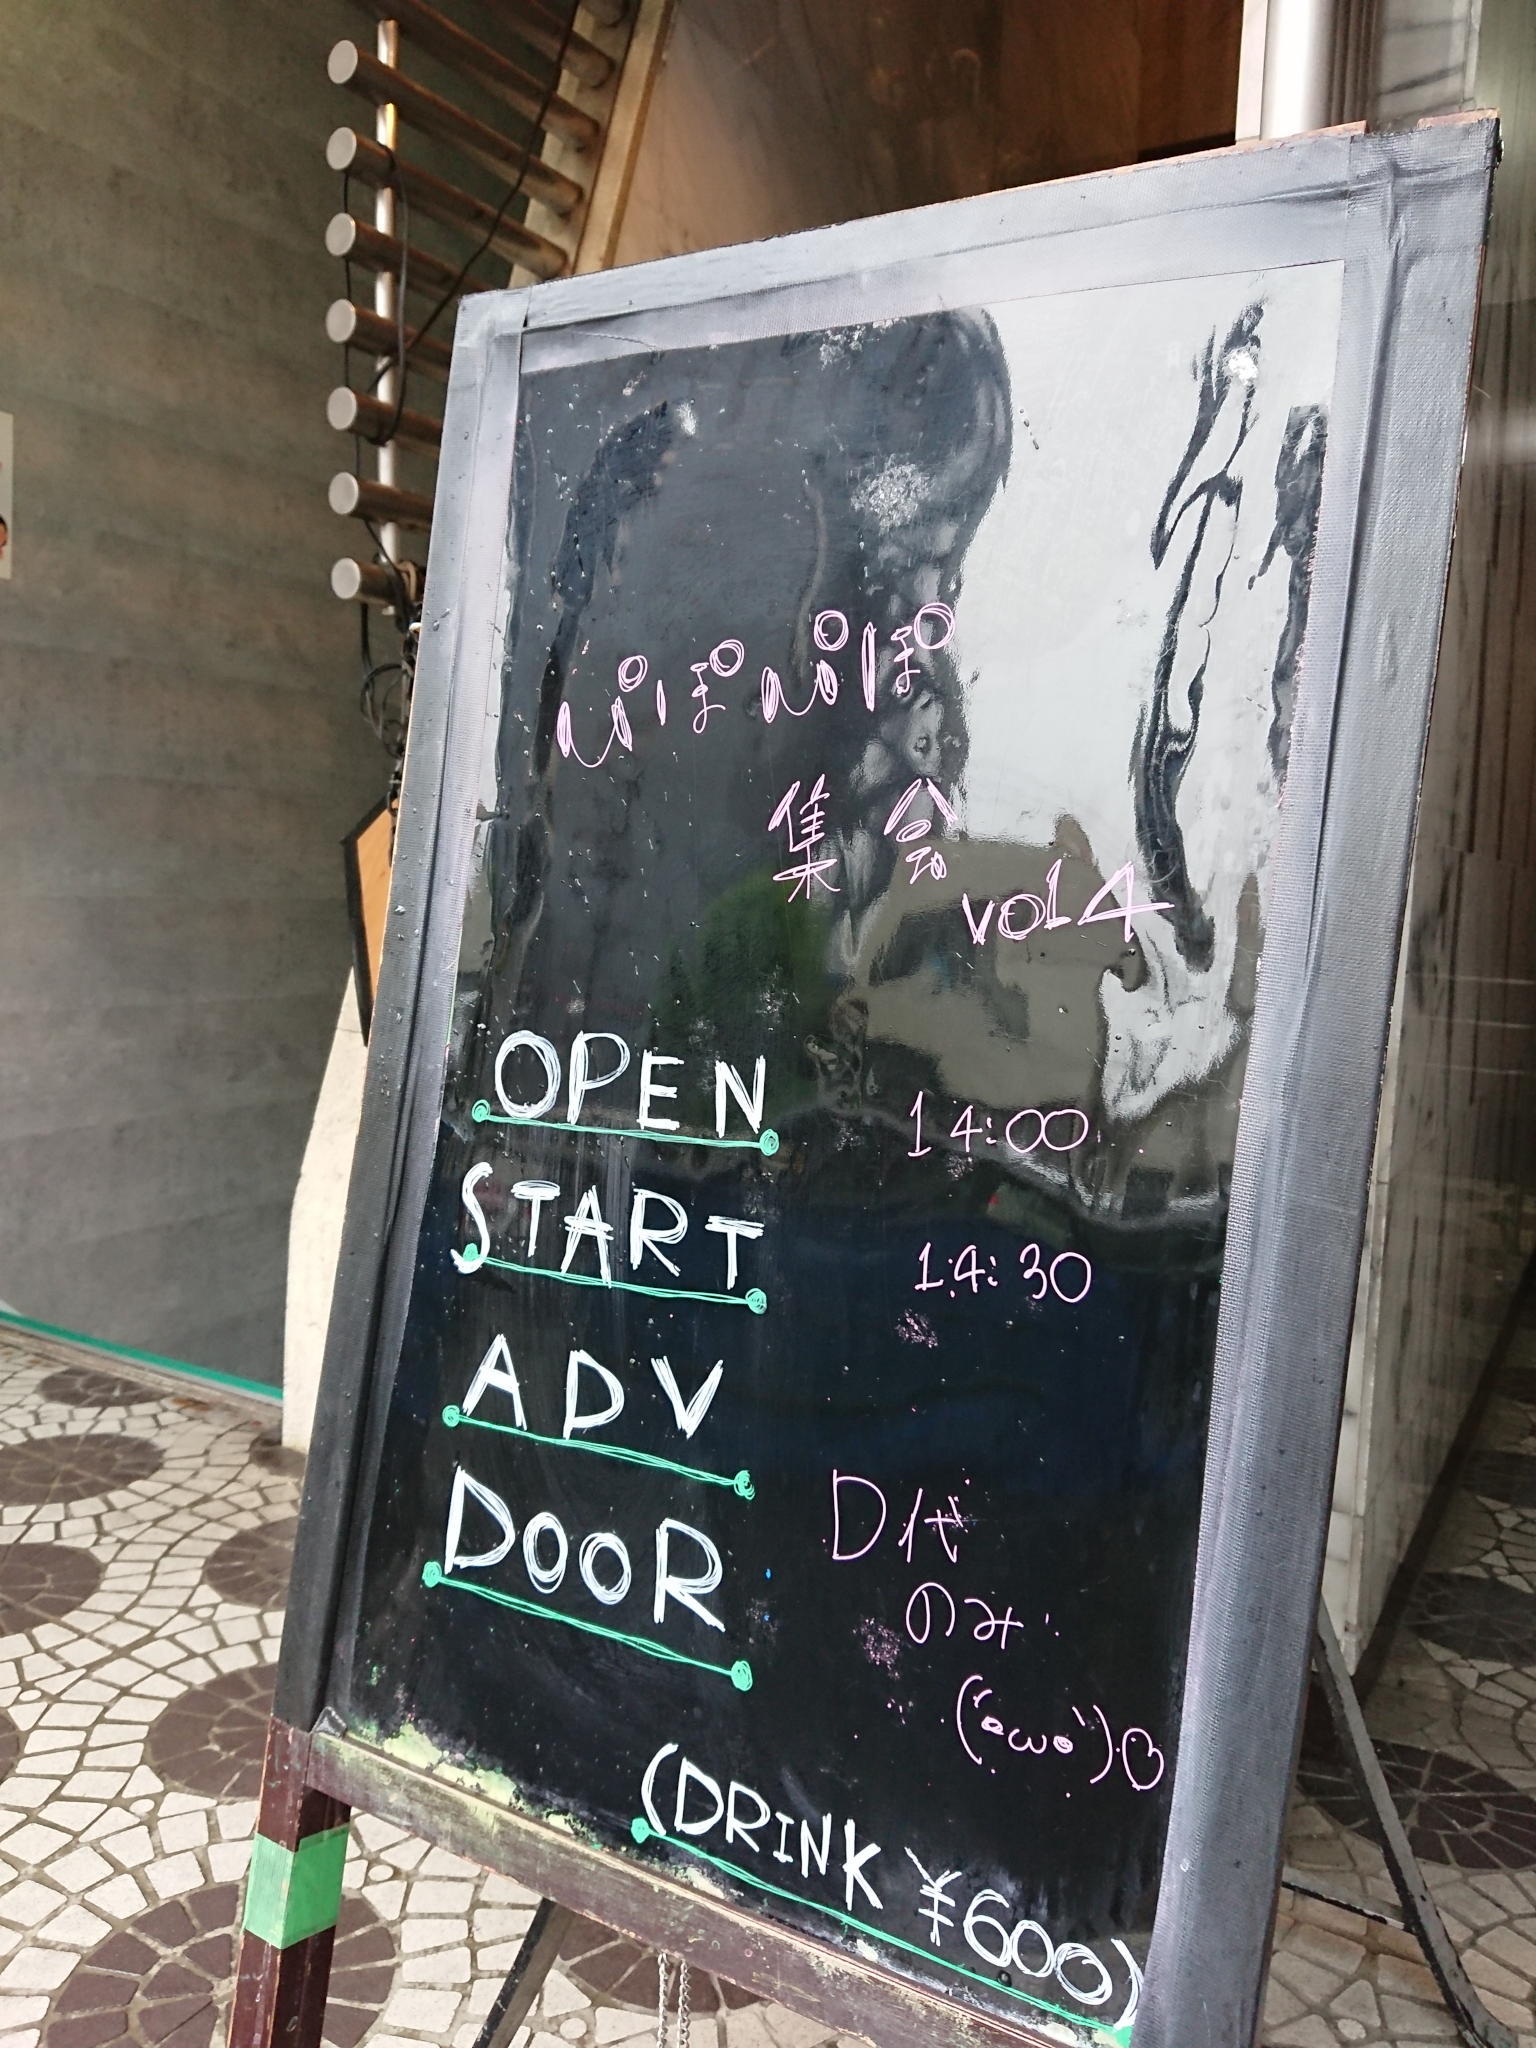 ぴぽぴぽ
集会
vol 4
OPEN 14:00
START 14:30
ADV
DOOR D代
のみ
(´・ω・`)
(DRINK ¥600)